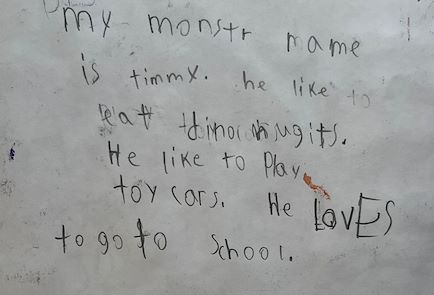 my monstr name
is timmy. he like to
eat dinocnugits.
He like to Play
toy cars. He LovES
to go to school.